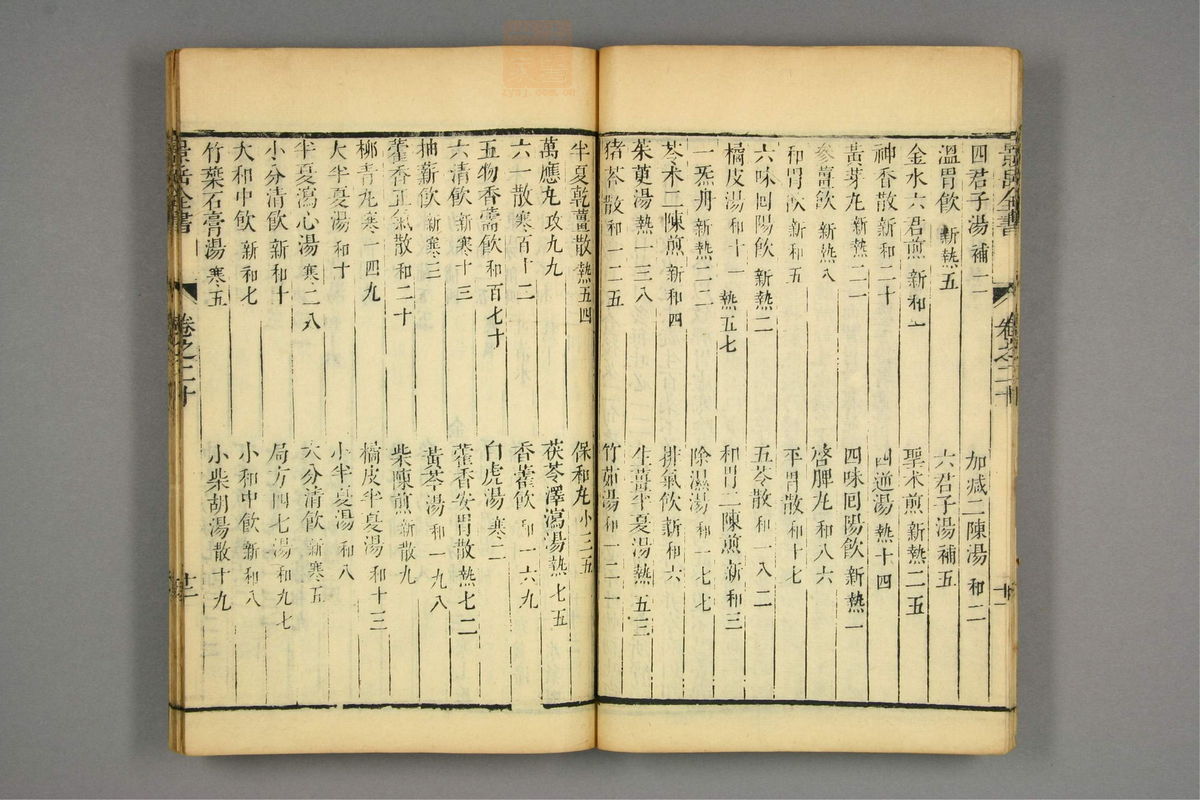 景岳全書 卷之二十
四君子湯補一 加减二陳湯和二
溫胃飲新熱五 六君子湯補五
金水六君煎新和一 聖术煎新熱二五
神香散新和二十 四逆湯熱十四
黃芽丸新熱二一 四味囘陽飲新熱一
參薑飲新熱八 啓脾丸和八六
和胃飲新和五 平胃散和十七
六味囘陽飲新熱二 五苓散和一八二
橘皮湯和十一熱五七 和胃二陳煎新和三
一炁丹新熱二二 除濕湯和一七七
苓术二陳煎新和四 排氣飲新和六
茱萸湯熱一三八 生薑半夏湯熱五三
猪苓散和一二五 竹茹湯和一二一
半夏乾薑散熱五四 保和丸小三五
萬應丸攻九九 茯苓澤瀉湯熱七五
六一散寒百十二 香薷飲和一六九
五物香薷飲和百七十 白虎湯寒二
六清飲新寒十三 藿香安胃散熱七二
抽薪飲新寒三 黃芩湯和一九八
藿香正氣散和二十 柴陳煎新散九
抑青丸寒一四九 橘皮半夏湯和十三
大半夏湯和十 小半夏湯和八
半夏瀉心湯寒二八 大分清飲新寒五
小分清飲新和十 局方四七湯和九七
大和中飲新和七 小和中飲新和八
竹葉石膏湯寒五 小柴胡湯散十九
景岳全書 卷之二十